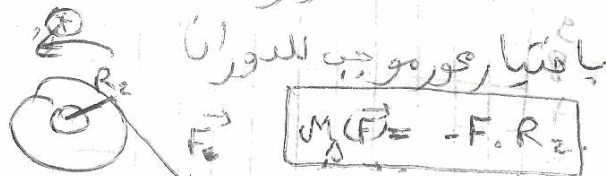 +
باختيار محور موجب للدوران
R₂
F₂ M_Δ(F) = - F . R₂